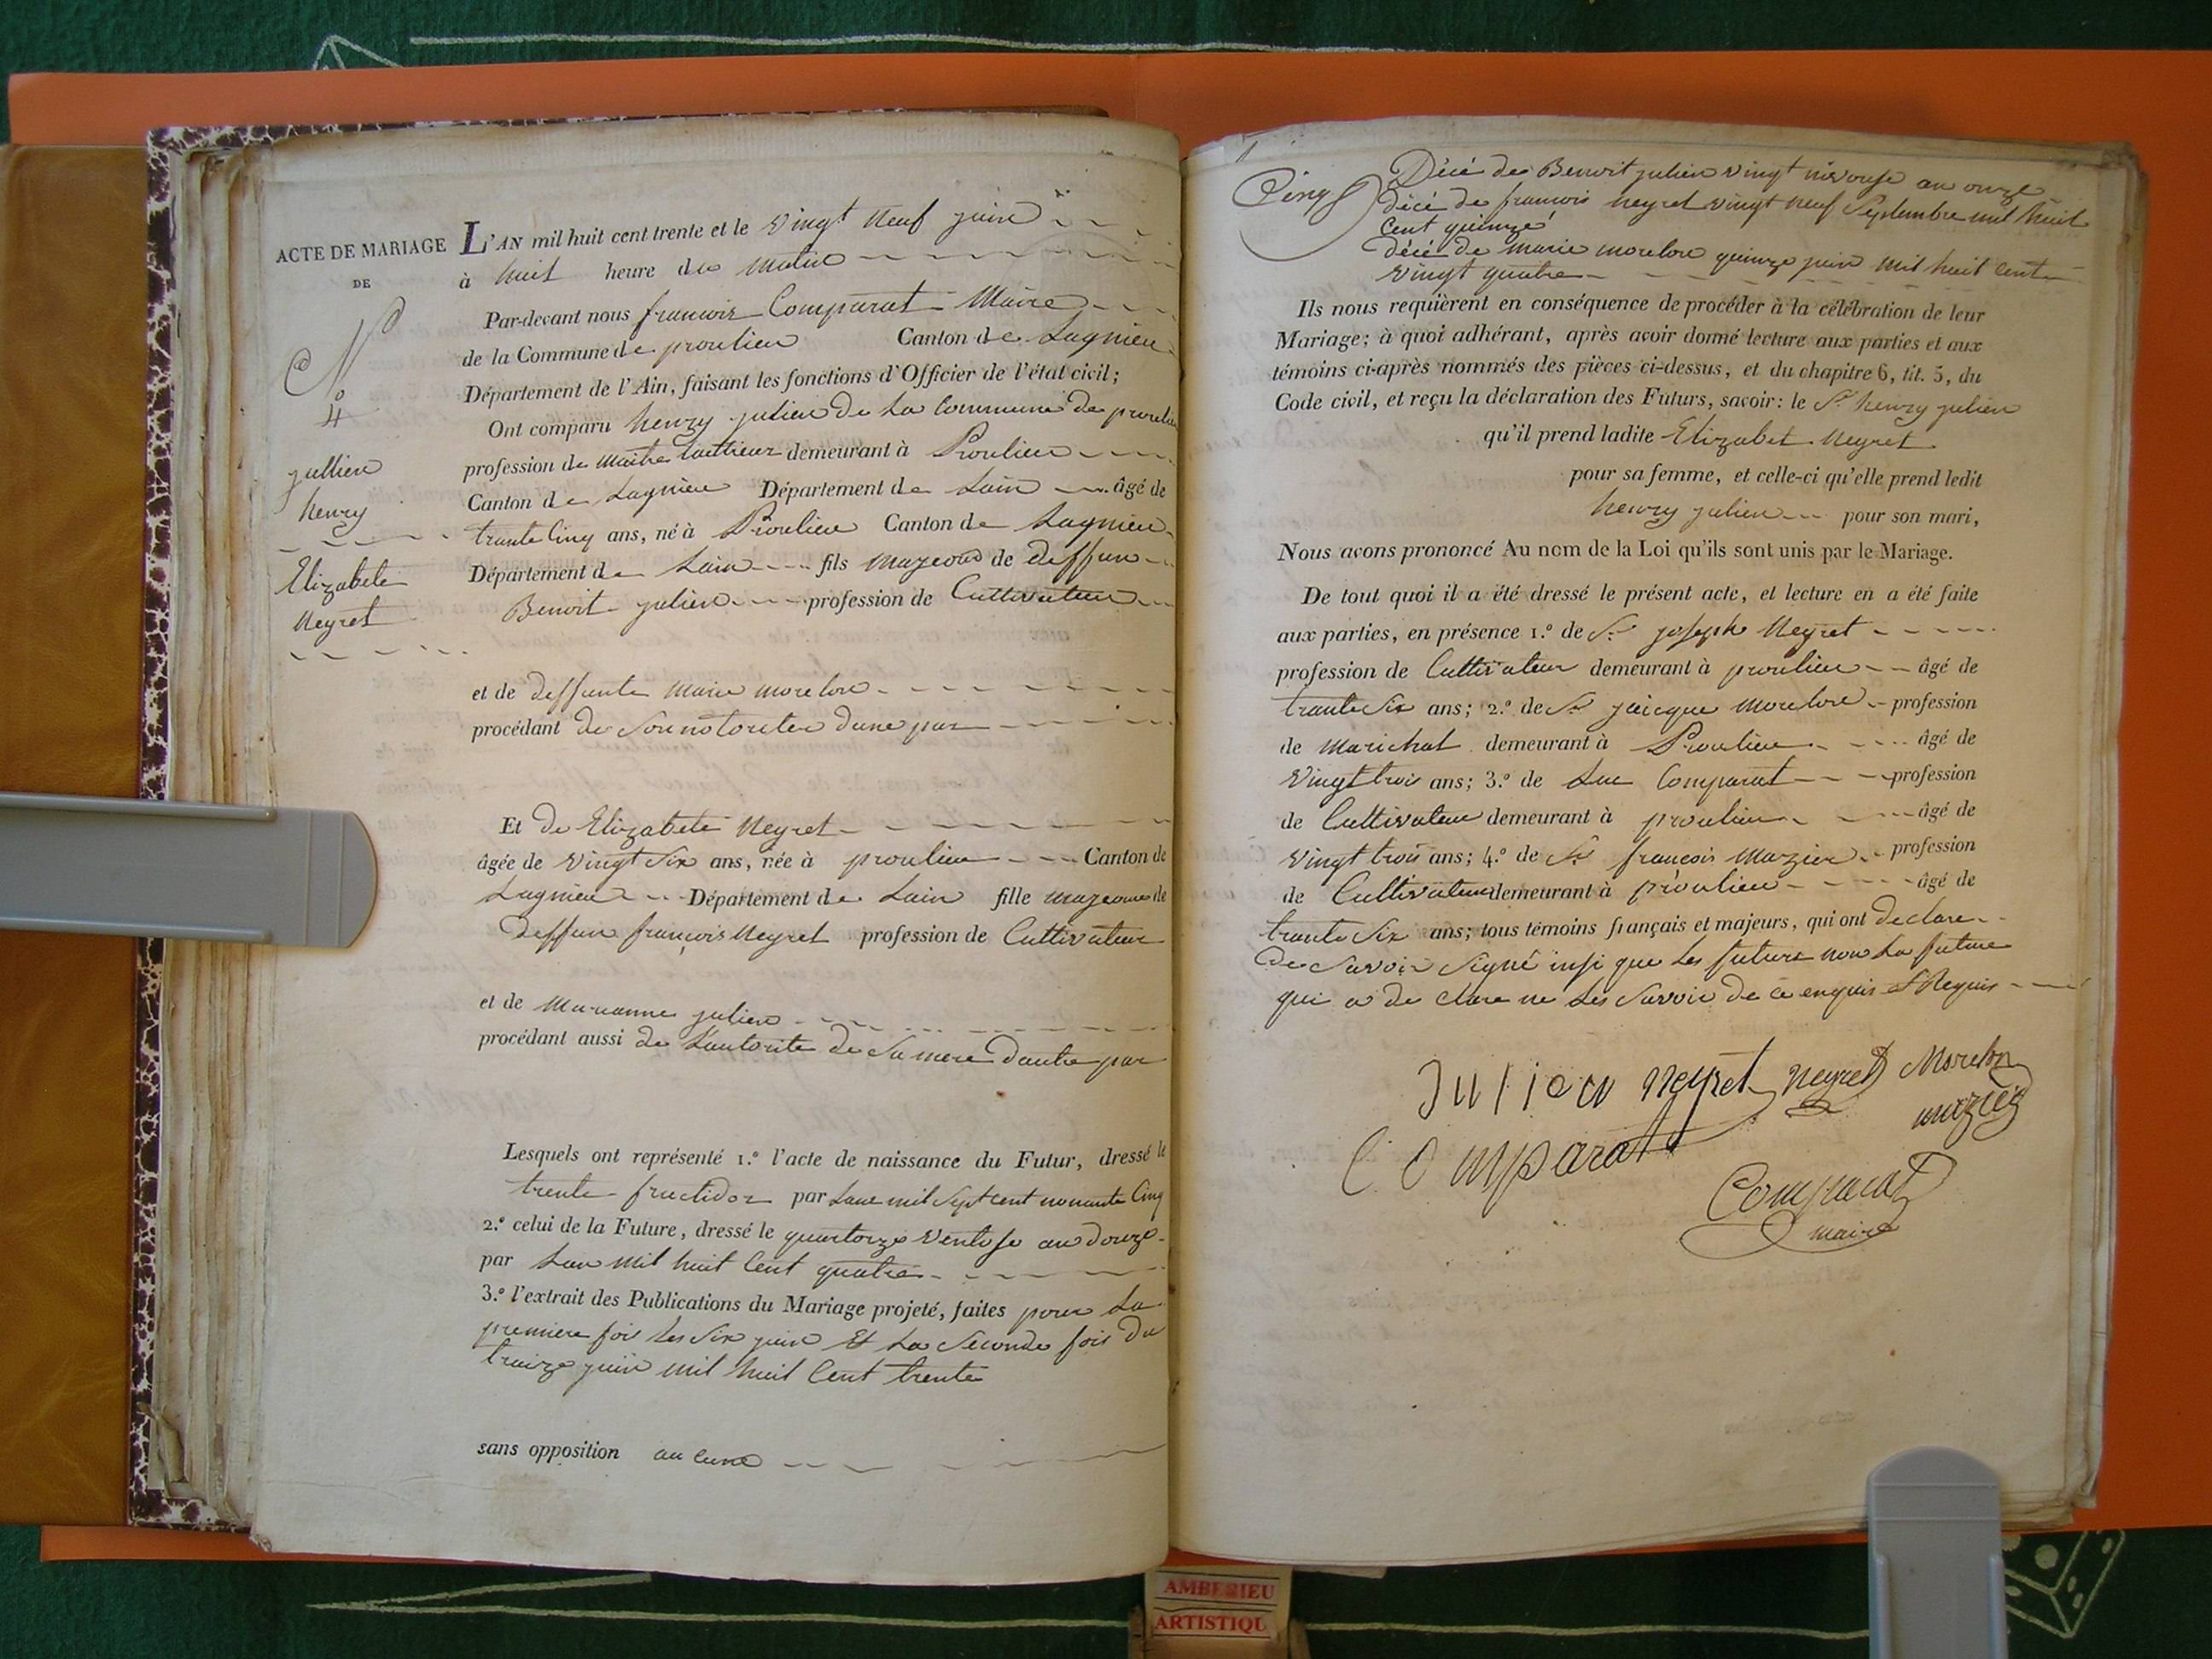 ACTE DE MARIAGE
DE
N.o
4
jullien
henry
Elizabete
Neyret
L'AN mil huit cent trente et le vingt neuf juin
à huit heure du matin
Par-devant nous francois Comparat Maire
de la Commune de proulieu Canton de Lagnieu
Département de l'Ain, faisant les fonctions d'Officier de l'état civil;
Ont comparu henry julien de la Commune de proulieu
profession de maitre demeurant à Proulieu
Canton de Lagnieu Département de Lain âgé de
trante Cinq ans, né à Proulieu Canton de Lagnieu
Département de Lain fils majeour de deffun
Benoit julien profession de Cultivateur
et de deffunte marie morelon
procédant de son notoritee dune par
Et de Elizabete Neyret
âgée de vingt six ans, née à proulieu Canton de
Lagnieu Département de Lain fille majeoure de
deffun françois Neyret profession de Cultivateur
et de Marianne julien
procédant aussi de Lautorite de Sa mere dautre par
Lesquels ont représenté 1.o l'acte de naissance du Futur, dressé le
trente fructidor par Lane mil Sept cent nonante Cinq
2.o celui de la Future, dressé le quartorze ventose an douze
par Lan mil huit Cent quatre
3.o l'extrait des Publications du Mariage projeté, faites pour La
premiere fois Les Six juin Et La Seconde fois du
traize juin mil huit Cent trente
sans opposition au cune
Cinq
Décé de Benoit julien vingt nivouse an onze
décé de francois neyret vingt neuf Septembre mil huit
Cent quinze
décé de marie morelon quinze juin mil huit Cent
vingt quatre
Ils nous requièrent en conséquence de procéder à la célébration de leur
Mariage; à quoi adhérant, après avoir donné lecture aux parties et aux
témoins ci-après nommés des pièces ci-dessus, et du chapitre 6, tit. 5, du
Code civil, et reçu la déclaration des Futurs, savoir: le Sr henry julien
qu'il prend ladite Elizabet Neyret
pour sa femme, et celle-ci qu'elle prend ledit
henry julien pour son mari,
Nous avons prononcé Au nom de la Loi qu'ils sont unis par le Mariage.
De tout quoi il a été dressé le présent acte, et lecture en a été faite
aux parties, en présence 1.o de Sr joseph Neyret
profession de Cultivateur demeurant à proulieu âgé de
trante Six ans; 2.o de Sr jaicque morelon profession
de marichal demeurant à Proulieu âgé de
vingt trois ans; 3.o de Luc Comparat profession
de Cultivateur demeurant à proulieu âgé de
vingt trois ans; 4.o de Sr françois Mazier profession
de Cultivateur demeurant à proulieu âgé de
trante Six ans; tous témoins français et majeurs, qui ont declare
De Savoir Signé insi que Les future non La future
qui a de clare ne Les Savoir de ce enquis et Requis
Julien neyret neyret Morelon
mazier
Comparat
Comparat
maire
AMBERIEU
ARTISTIQU